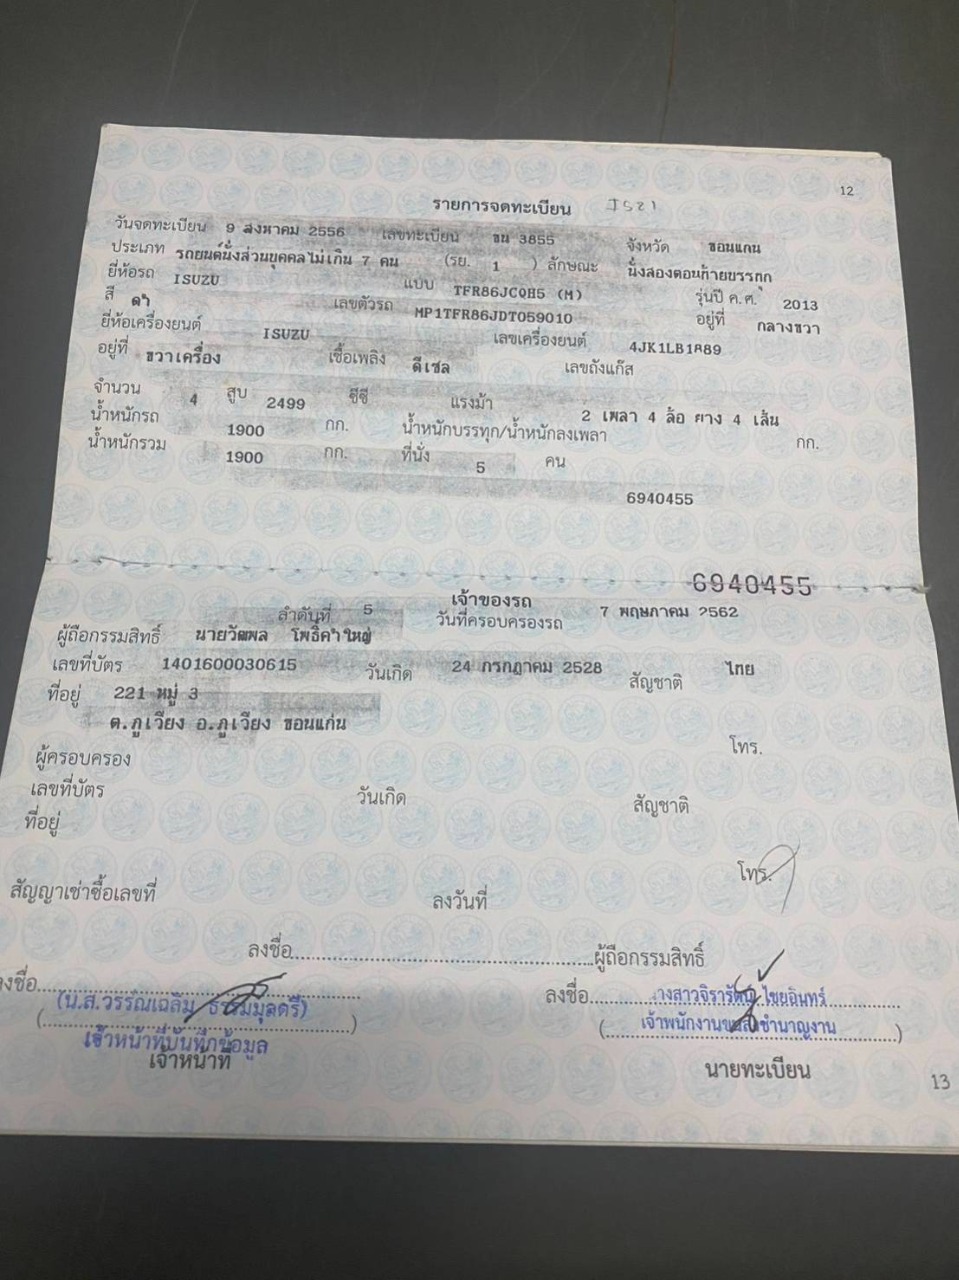 12
รายการจดทะเบียน JS21
วันจดทะเบียน 9 สิงหาคม 2556 เลขทะเบียน ขน 3855 จังหวัด ขอนแก่น
ประเภท รถยนต์นั่งส่วนบุคคลไม่เกิน 7 คน (รย. 1 ) ลักษณะ นั่งสองตอนท้ายบรรทุก
ยี่ห้อรถ ISUZU แบบ TFR86JCQH5 (M) รุ่นปี ค.ศ. 2013
สี ดำ เลขตัวรถ MP1TFR86JDT059010 อยู่ที่ กลางขวา
ยี่ห้อเครื่องยนต์ ISUZU เลขเครื่องยนต์ 4JK1LB1889
อยู่ที่ ขวาเครื่อง เชื้อเพลิง ดีเซล เลขถังแก๊ส
จำนวน 4 สูบ 2499 ซีซี แรงม้า 2 เพลา 4 ล้อ ยาง 4 เส้น
น้ำหนักรถ 1900 กก. น้ำหนักบรรทุก/น้ำหนักลงเพลา กก.
น้ำหนักรวม 1900 กก. ที่นั่ง 5 คน
6940455
6940455
เจ้าของรถ
ลำดับที่ 5 วันที่ครอบครองรถ 7 พฤษภาคม 2562
ผู้ถือกรรมสิทธิ์ นายวัฒพล โพธิ์คำใหญ่
เลขที่บัตร 1401600030615 วันเกิด 24 กรกฎาคม 2528 สัญชาติ ไทย
ที่อยู่ 221 หมู่ 3
ต.ภูเวียง อ.ภูเวียง ขอนแก่น
โทร.
ผู้ครอบครอง
เลขที่บัตร วันเกิด สัญชาติ
ที่อยู่
โทร.
สัญญาเช่าซื้อเลขที่ ลงวันที่
ลงชื่อ ผู้ถือกรรมสิทธิ์
ลงชื่อ ลงชื่อ
(น.ส.วรรณเฉลิม ธรรมมูลตรี) นางสาวจิรารัตน์ ไชยอินทร์
เจ้าหน้าที่บันทึกข้อมูล เจ้าพนักงานขนส่งชำนาญงาน
เจ้าหน้าที่ นายทะเบียน
13